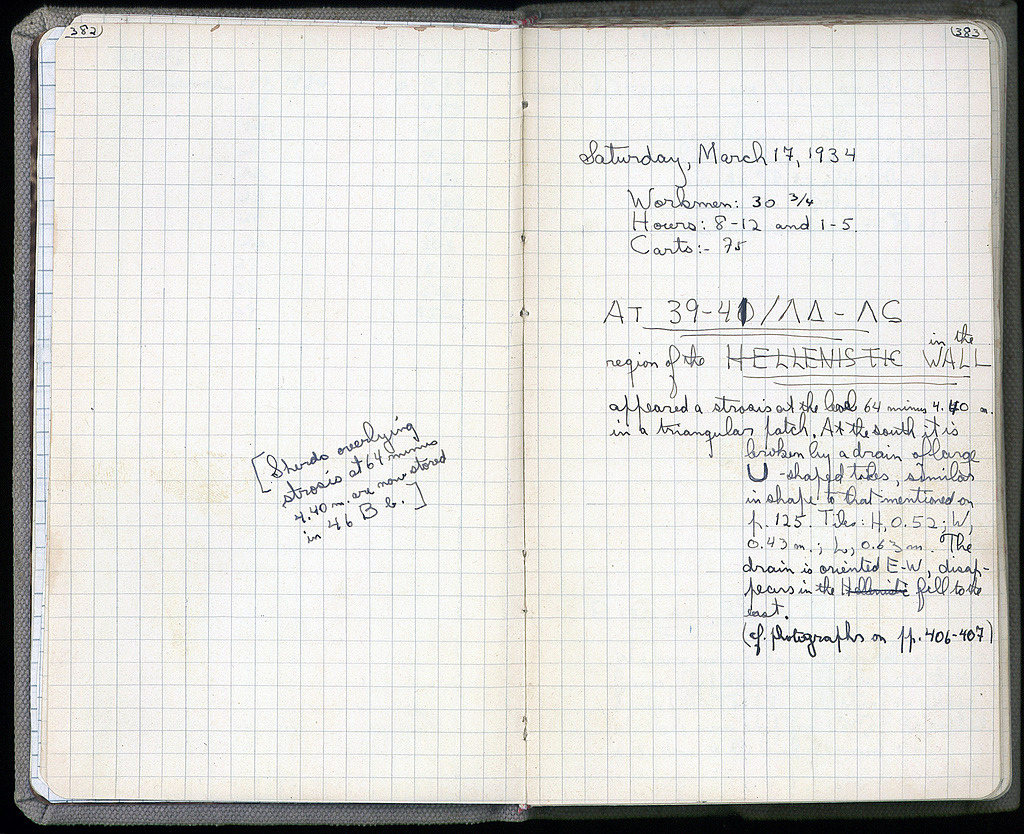 382
[Sherds overlying
strosis at 64 minus
4.40 m. are now stored
in 46 B b.]
383
Saturday, March 17, 1934
Workmen: 30 3/4
Hours: 8-12 and 1-5.
Carts:- 75
AT 39-41/ΛΔ-ΛϚ
in the
region of the HELLENISTIC WALL
appeared a strosis at the level 64 minus 4.40 m.
in a triangular patch. At the south it is
broken by a drain of large
U-shaped tiles, similar
in shape to that mentioned on
p. 125. Tiles: H, 0.52; W,
0.43 m.; L, 0.63 m. The
drain is oriented E-W, disap-
pears in the Hellenistic fill to the
east.
(cf. photographs on pp. 406-407)